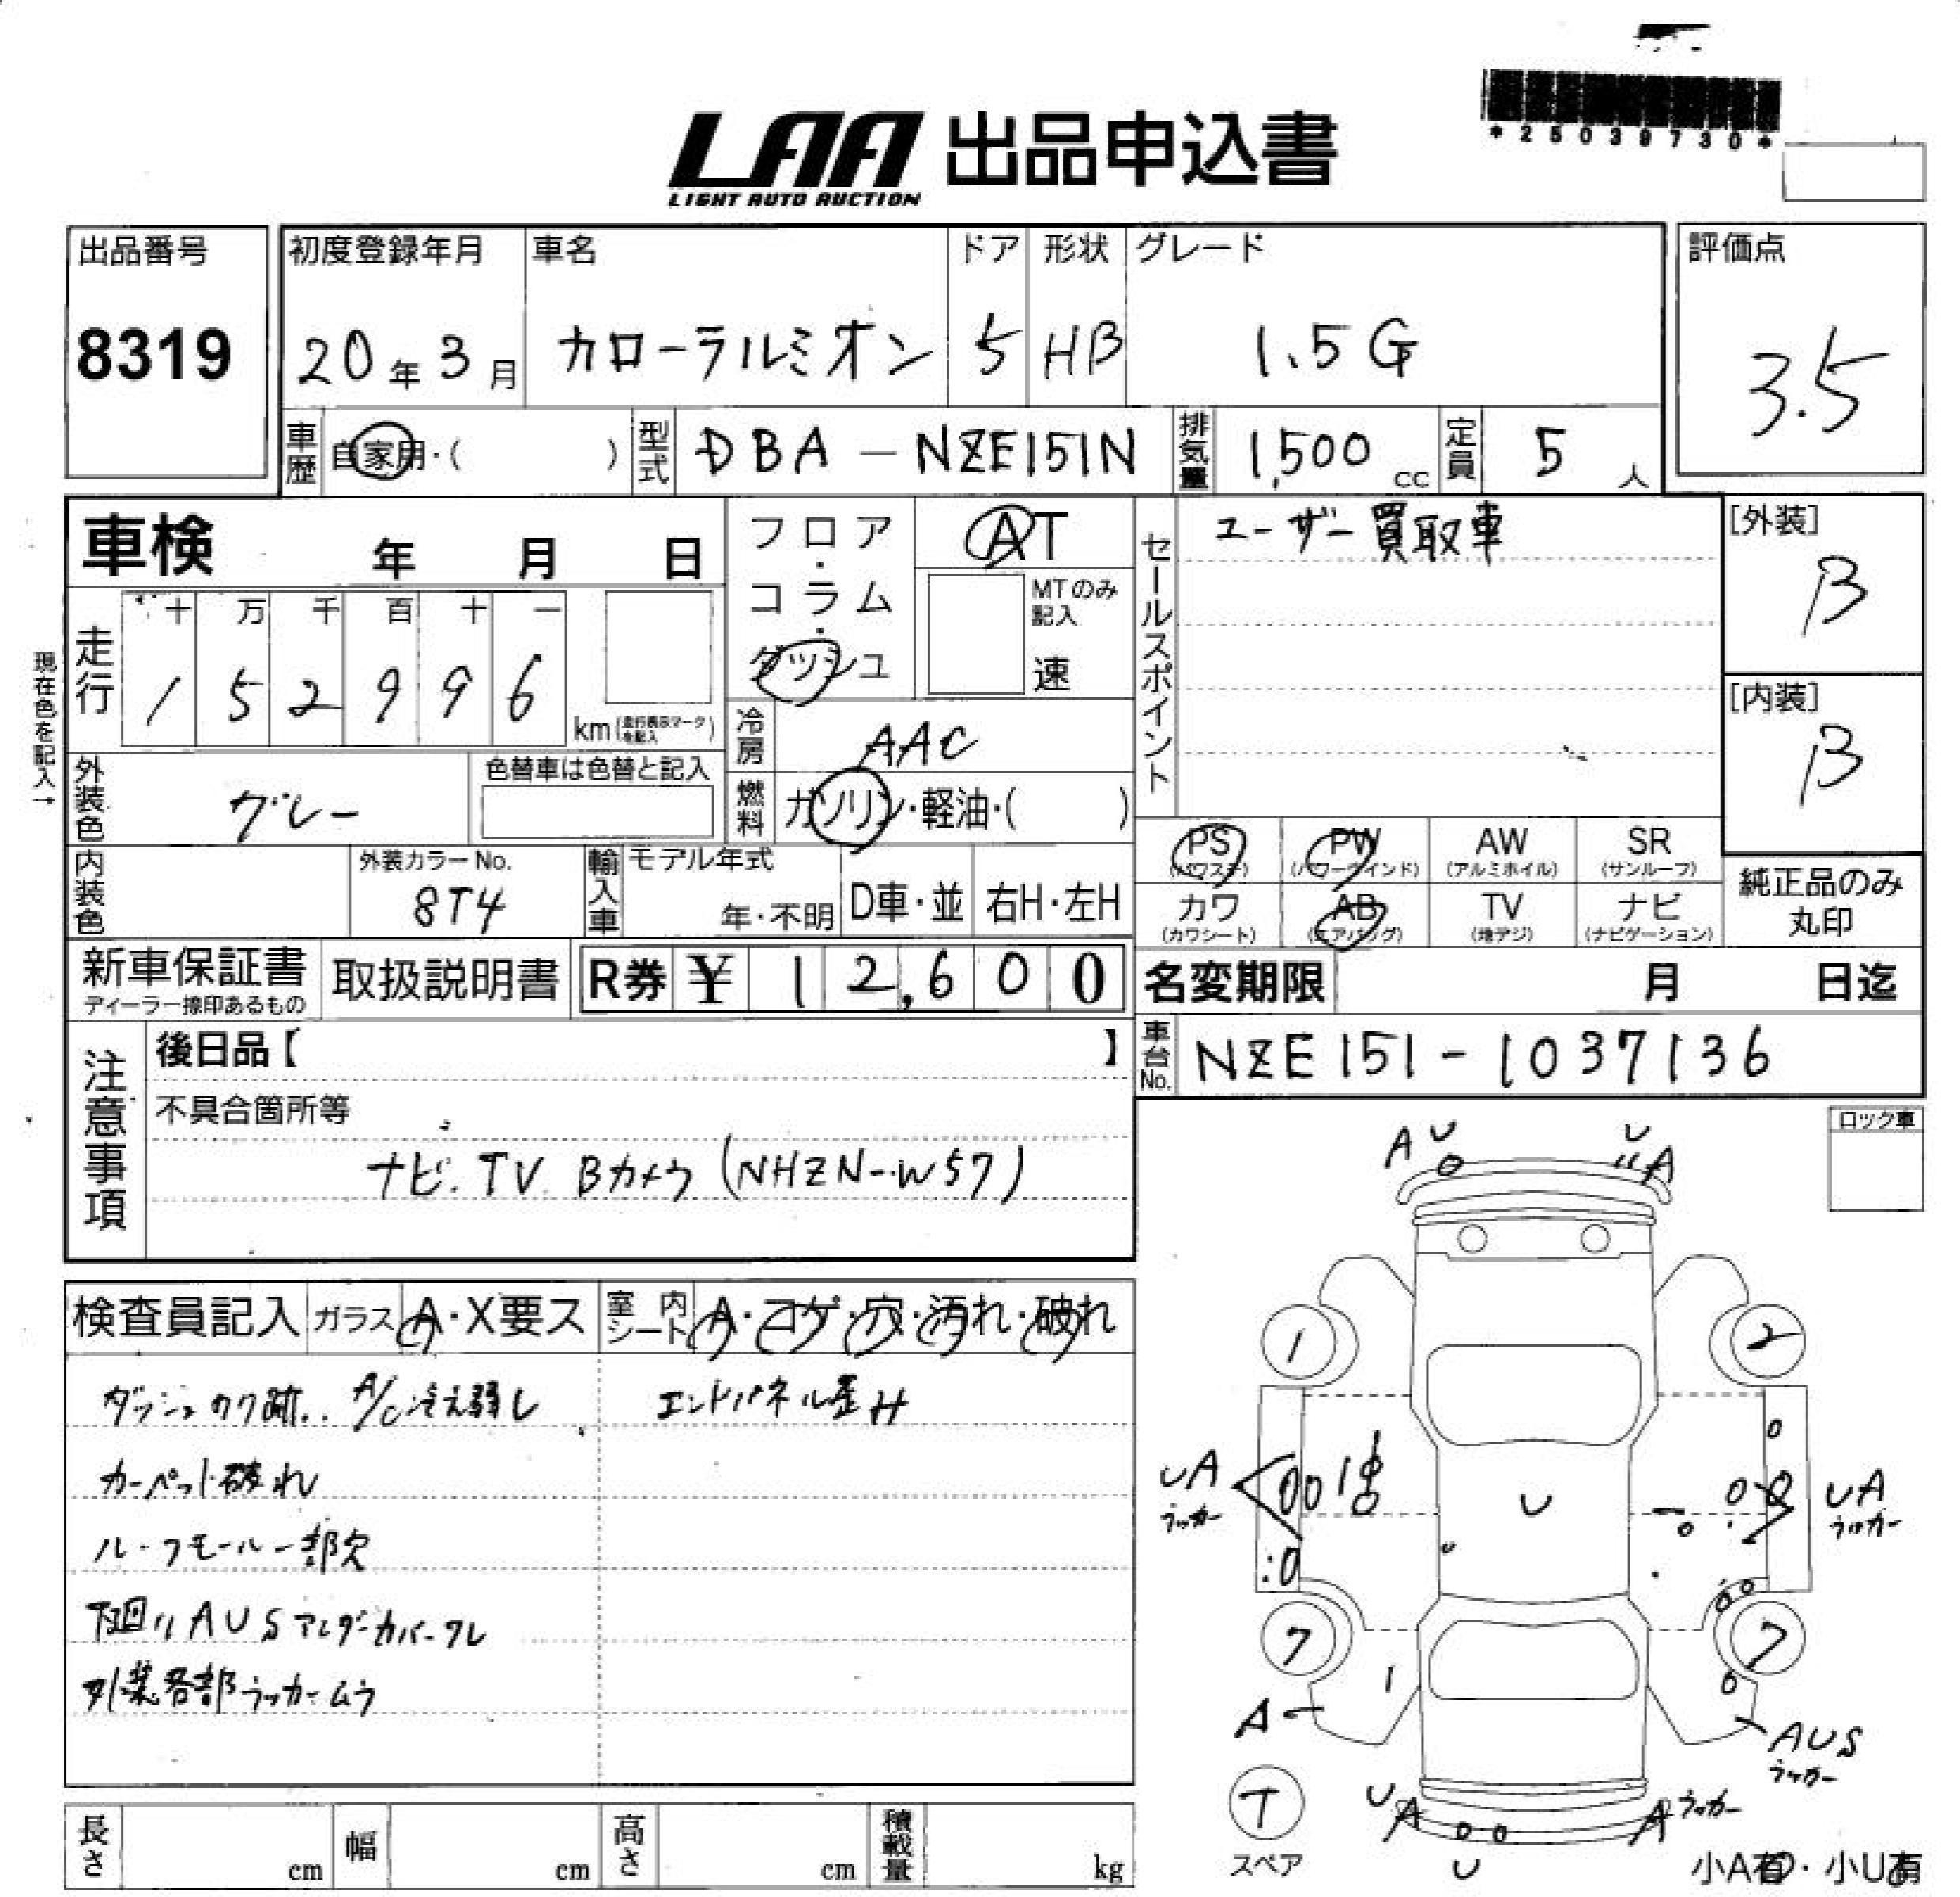 *25039730*
LAA 出品申込書
LIGHT AUTO AUCTION
出品番号
8319
初度登録年月
20年3月
車名
カローラルミオン
ドア
5
形状
HB
グレード
1.5G
評価点
3.5
車歴 自家用・( )
型式 DBA-NZE151N
排気量 1,500 cc
定員 5 人
車検 年 月 日
フロア・コラム・ダッシュ
AT
MTのみ記入
速
セールスポイント
ユーザー買取車
[外装]
B
[内装]
B
現在色を記入→
走行
十 万 千 百 十 一
1 5 2 9 9 6
km(走行表示マークを記入)
冷房 AAC
燃料 ガソリン・軽油・( )
外装色 グレー
色替車は色替と記入
内装色
外装カラーNo.
8T4
輸入車
モデル年式
年・不明
D車・並
右H・左H
PS (パワステ)
PW (パワーウインド)
AW (アルミホイル)
SR (サンルーフ)
カワ (カワシート)
AB (エアバッグ)
TV (地デジ)
ナビ (ナビゲーション)
純正品のみ丸印
新車保証書
ディーラー捺印あるもの
取扱説明書
R券 ¥ 12,600
名変期限 月 日迄
車台No. NZE151-1037136
注意事項
後日品【 】
不具合箇所等
ナビ.TV Bカメラ(NHZN-W57)
ロック車
検査員記入
ガラス A・X要ス
室内シート A・コゲ・穴・汚れ・破れ
ダッシュカク跡.. A/C冷え弱し
エンドパネル歪み
カーペット破れ
ルーフモール一部欠
下廻りAUSアンダーカバーワレ
外装各部ラッカームラ
A U
U A
1
2
UA
ラッカー
U
UA
ラッカー
7
7
A
AUS
ラッカー
T
スペア
U
A
U
A ラッカー
小A有・小U有
長さ cm
幅 cm
高さ cm
積載量 kg